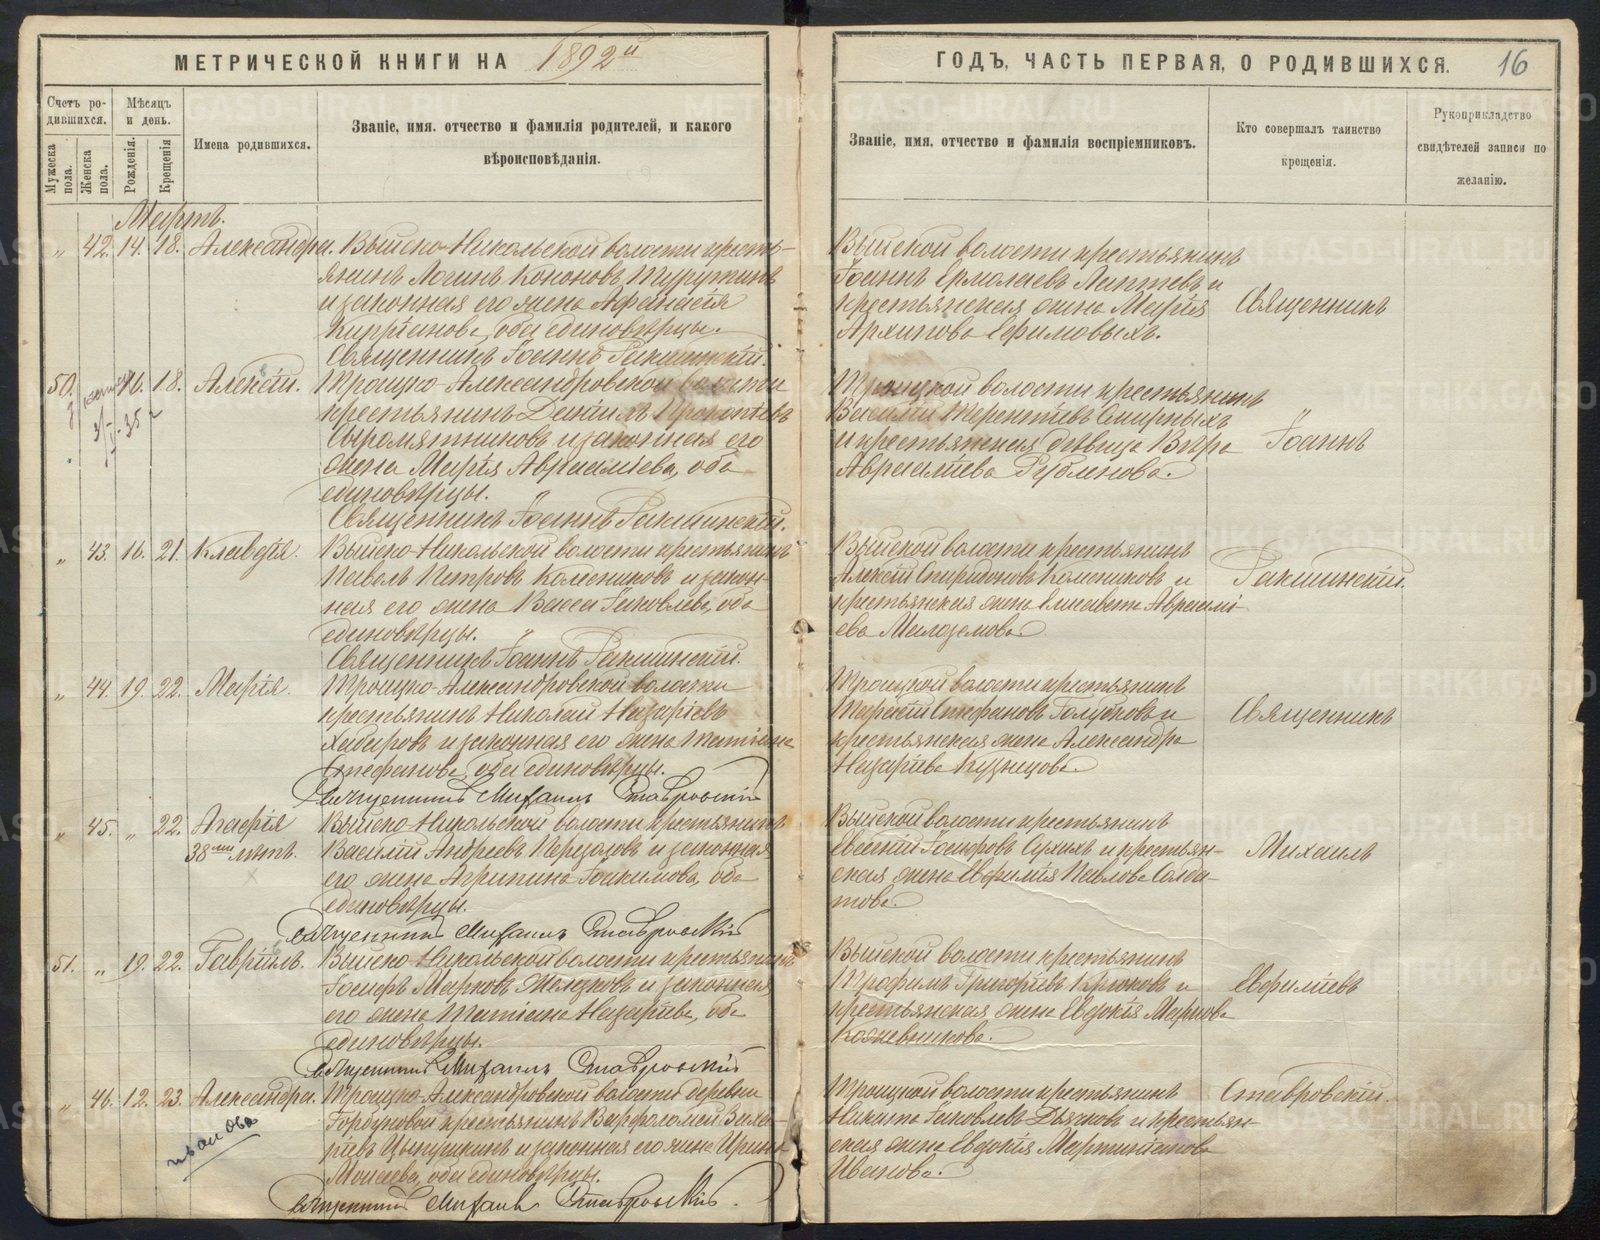 МЕТРИЧЕСКОЙ КНИГИ НА 1892й
ГОДЪ, ЧАСТЬ ПЕРВАЯ, О РОДИВШИХСЯ. 16
Счетъ ро-
дившихся.
Мужеска
пола.
Женска
пола.
Мѣсяцъ
и день.
Рожденія.
Крещенія
Имена родившихся.
Званіе, имя. отчество и фамилія родителей, и какого
вѣроисповѣданія.
Званіе, имя, отчество и фамилія воспріемниковъ.
Кто совершалъ таинство
крещенія.
Рукоприкладство
свидѣтелей записи по
желанію.
Мартъ.
„ 42. 14. 18. Александра. Выйско-Никольской волости кресть-
янинъ Логинъ Кононовъ
и законная его жена Афанасія
оба единовѣрцы.
Священникъ Іоаннъ Ракшинскій.
Выйской волости крестьянинъ
Іоаннъ Ермолаевъ Лаптевъ и
крестьянская жена Марія
Архипова Ефимовыхъ.
Священникъ
50. 16. 18. Алексѣй. Троицко-Александровской волости
крестьянинъ Прокопіевъ
Сыромятниковъ и законная его
жена Марія Авраамiева, оба
единовѣрцы.
Священникъ Іоаннъ Ракшинскій.
Троицкой волости крестьянинъ
Василій Терентіевъ Смирныхъ
и крестьянская дѣвица Вѣра
Авраамiева Рубленова.
Іоаннъ
„ 43. 16. 21. Клавдія. Выйско-Никольской волости крестьянинъ
Павелъ Петровъ Колесниковъ и закон-
ная его жена Васса Іаковлева, оба
единовѣрцы.
Священникъ Іоаннъ Ракшинскій.
Выйской волости крестьянинъ
Алексѣй Спиридоновъ Колесниковъ и
крестьянская жена Елисавета Авраамi-
ева Малоземова.
Ракшинскій.
„ 44. 19. 22. Марія. Троицко-Александровской волости
крестьянинъ Николай Назаріевъ
Хабаровъ и законная его жена Татіана
Стефанова, оба единовѣрцы.
Священникъ Михаилъ Ставровскій
Троицкой волости крестьянинъ
Тарасій Стефановъ Голубковъ и
крестьянская жена Александра
Назаріева Кузнецова.
Священникъ
„ 45. „ 22. Агафія
38ми лѣтъ.
Выйско-Никольской волости крестьянинъ
Василій Андреевъ и законная
его жена Агрипина Іоакимова, оба
единовѣрцы.
Священникъ Михаилъ Ставровскій
Выйской волости крестьянинъ
Евсевій Іосифовъ Сухихъ и крестьян-
ская жена Евфимія Павлова Солда-
това.
Михаилъ
51. „ 19. 22. Гавріилъ. Выйско-Никольской волости крестьянинъ
Іосифъ Марковъ и законная
его жена Татіана Назаріева, оба
единовѣрцы.
Священникъ Михаилъ Ставровскій
Выйской волости крестьянинъ
Трофимъ Григоріевъ Крюковъ и
крестьянская жена Евдокія Маркова
Кожевникова.
Евфиміевъ
„ 46. 12. 23. Александра. Троицко-Александровской волости деревни
Горбуновой крестьянинъ Варфоломей Заха-
ріевъ и законная его жена Ирина
Моисеева, оба единовѣрцы.
Священникъ Михаилъ Ставровскій.
Иванова
Троицкой волости крестьянинъ
Никита Іаковлевъ Дьяковъ и крестьян-
ская жена Евдокія Мартиніанова
Иванова.
Ставровскій.
METRIKI.GASO-URAL.RU